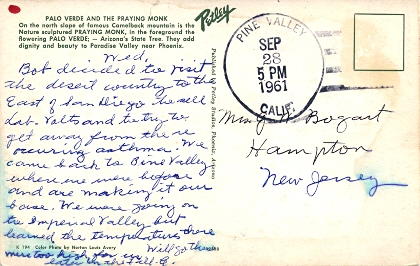 PALO VERDE AND THE PRAYING MONK
On the north slope of famous Camelback mountain is the
Nature sculptured PRAYING MONK, in the foreground the
flowering PALO VERDE — Arizona's State Tree. They add
dignity and beauty to Paradise Valley near Phoenix.
Petley
Published by Petley Studios, Phoenix, Arizona
PINE VALLEY
SEP
28
5 PM
1961
CALIF.
Wed,
Bob decided to visit
the desert country to the
East of San Diego to sell
Lab-Volts and to try to
get away from the re
occuring asthma. We
came back to Pine Valley
where we were before
and are making it our
base. We were going on
to Imperial Valley but
learned the temperatures there
were too high for us
Will go there
later in the Fall-E.
Bogart
Hampton
New Jersey
K 194 Color Photo by Norton Louis Avery